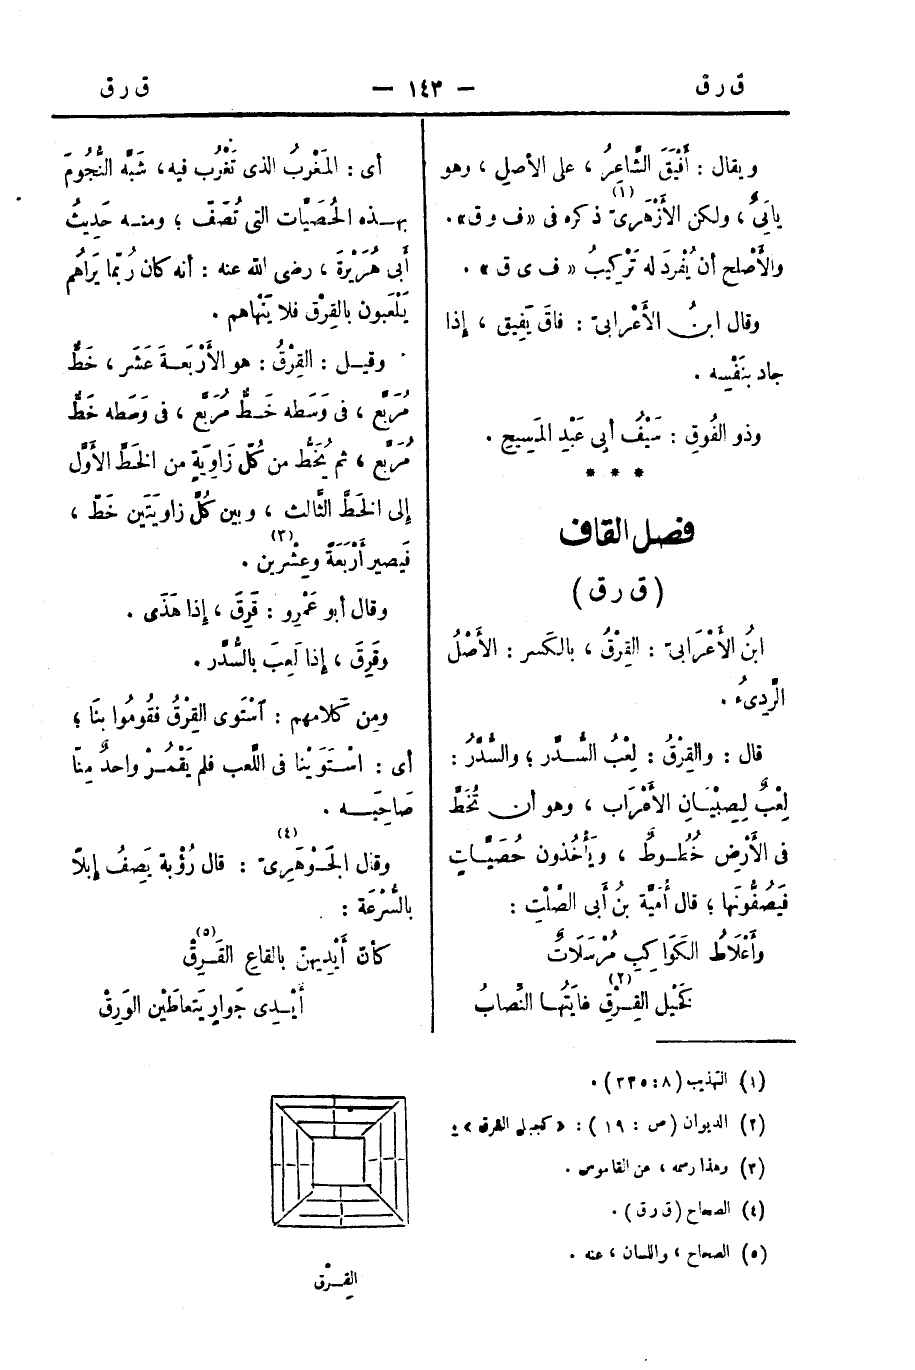 ق ر ق
— ١٤٣ —
ق ر ق
ويقال : أَفْيَقَ الشَّاعِرُ ، على الأصلِ ، وهو
يائىٌّ ، ولكن الأَزْهَرِىّ (١) ذكره فى « ف و ق » .
والأَصْلح أن يُفْرَدَ له تَرْكِيبُ « ف ى ق » .
وقال ابنُ الأَعْرابىّ : فاقَ يَفِيق ، إذا
جاد بنَفْسِه .
وذو الفُوقِ : سَيْفُ أبى عَبْدِ المَسِيحِ .
* * *
فصل القاف
( ق ر ق )
ابنُ الأَعْرَابىّ : القِرْقُ ، بالكَسر : الأَصْلُ
الرَّدِىءُ .
قال : والقِرْقُ : لِعْبُ السُّدَّر ؛ والسُّدَّرُ :
لِعْبٌ لِصِبْيَانِ الأَعْراب ، وهو أن تُخَطَّ
فى الأَرْضِ خُطُوطٌ ، ويَأْخُذون حُصَيَّاتٍ
فيَصُفُّونَها ؛ قال أُمَيَّة بنُ أبى الصَّلْتِ :
وأَعْلَاطُ الكَوَاكِبِ مُرْسَلَاتٌ
كَخَيْلِ القِرْقِ (٢) غايَتُهَا النِّصابُ
أى : المَغْرِبُ الذى تَغْرُب فيه ، شَبَّه النُّجُومَ
بهذه الحُصَيَّات التى تُصَفّ ؛ ومنه حَدِيثُ
أَبى هُرَيْرَةَ ، رضى الله عنه : أنه كان رُبّما يَرَاهُم
يَلْعَبون بالقِرْق فلا يَنْهاهم .
وقيل : القِرْقُ : هو الأَرْبَعةَ عَشَر ، خَطٌّ
مُرَبَّع ، فى وَسَطه خَطٌّ مُرَبَّع ، فى وَسَطه خَطٌّ
مُرَبَّع ، ثم يُخَطُّ من كُلّ زَاوِيَةٍ من الخَطِّ الأَوَّل
إلى الخَطِّ الثَّالث ، وبين كُلّ زاويَتَين خَطّ ،
فيَصير أَرْبَعَةً وعِشْرين (٣) .
وقال أبو عَمْرٍو : قَرِقَ ، إذا هَذَى .
وقَرِقَ ، إذا لَعِبَ بالسُّدَّر .
ومِن كَلامهم : اَسْتَوى القِرْقُ فقُومُوا بنَا ؛
أى : اسْتَوَيْنا فى اللَّعب فلم يَقْمُرْ واحدٌ مِنّا
صَاحِبَه .
وقال الجَوْهَرِىّ (٤) : قال رُؤْبة يَصِفُ إبلًا
بالسُّرْعَة :
كأنّ أَيْدِيهنّ بالقاعِ القَرِقْ (٥)
أَيْدِى جَوارٍ يَتعاطَيْن الوَرِقْ
(١) التهذيب ( ٨ : ٣٣٥ ) .
(٢) الديوان ( ص : ١٩ ) : « كحبل القرق » .
(٣) وهذا رسمه ، من القاموس .
(٤) الصحاح ( ق ر ق ) .
(٥) الصحاح ، واللسان ، عنه .
القِرْق